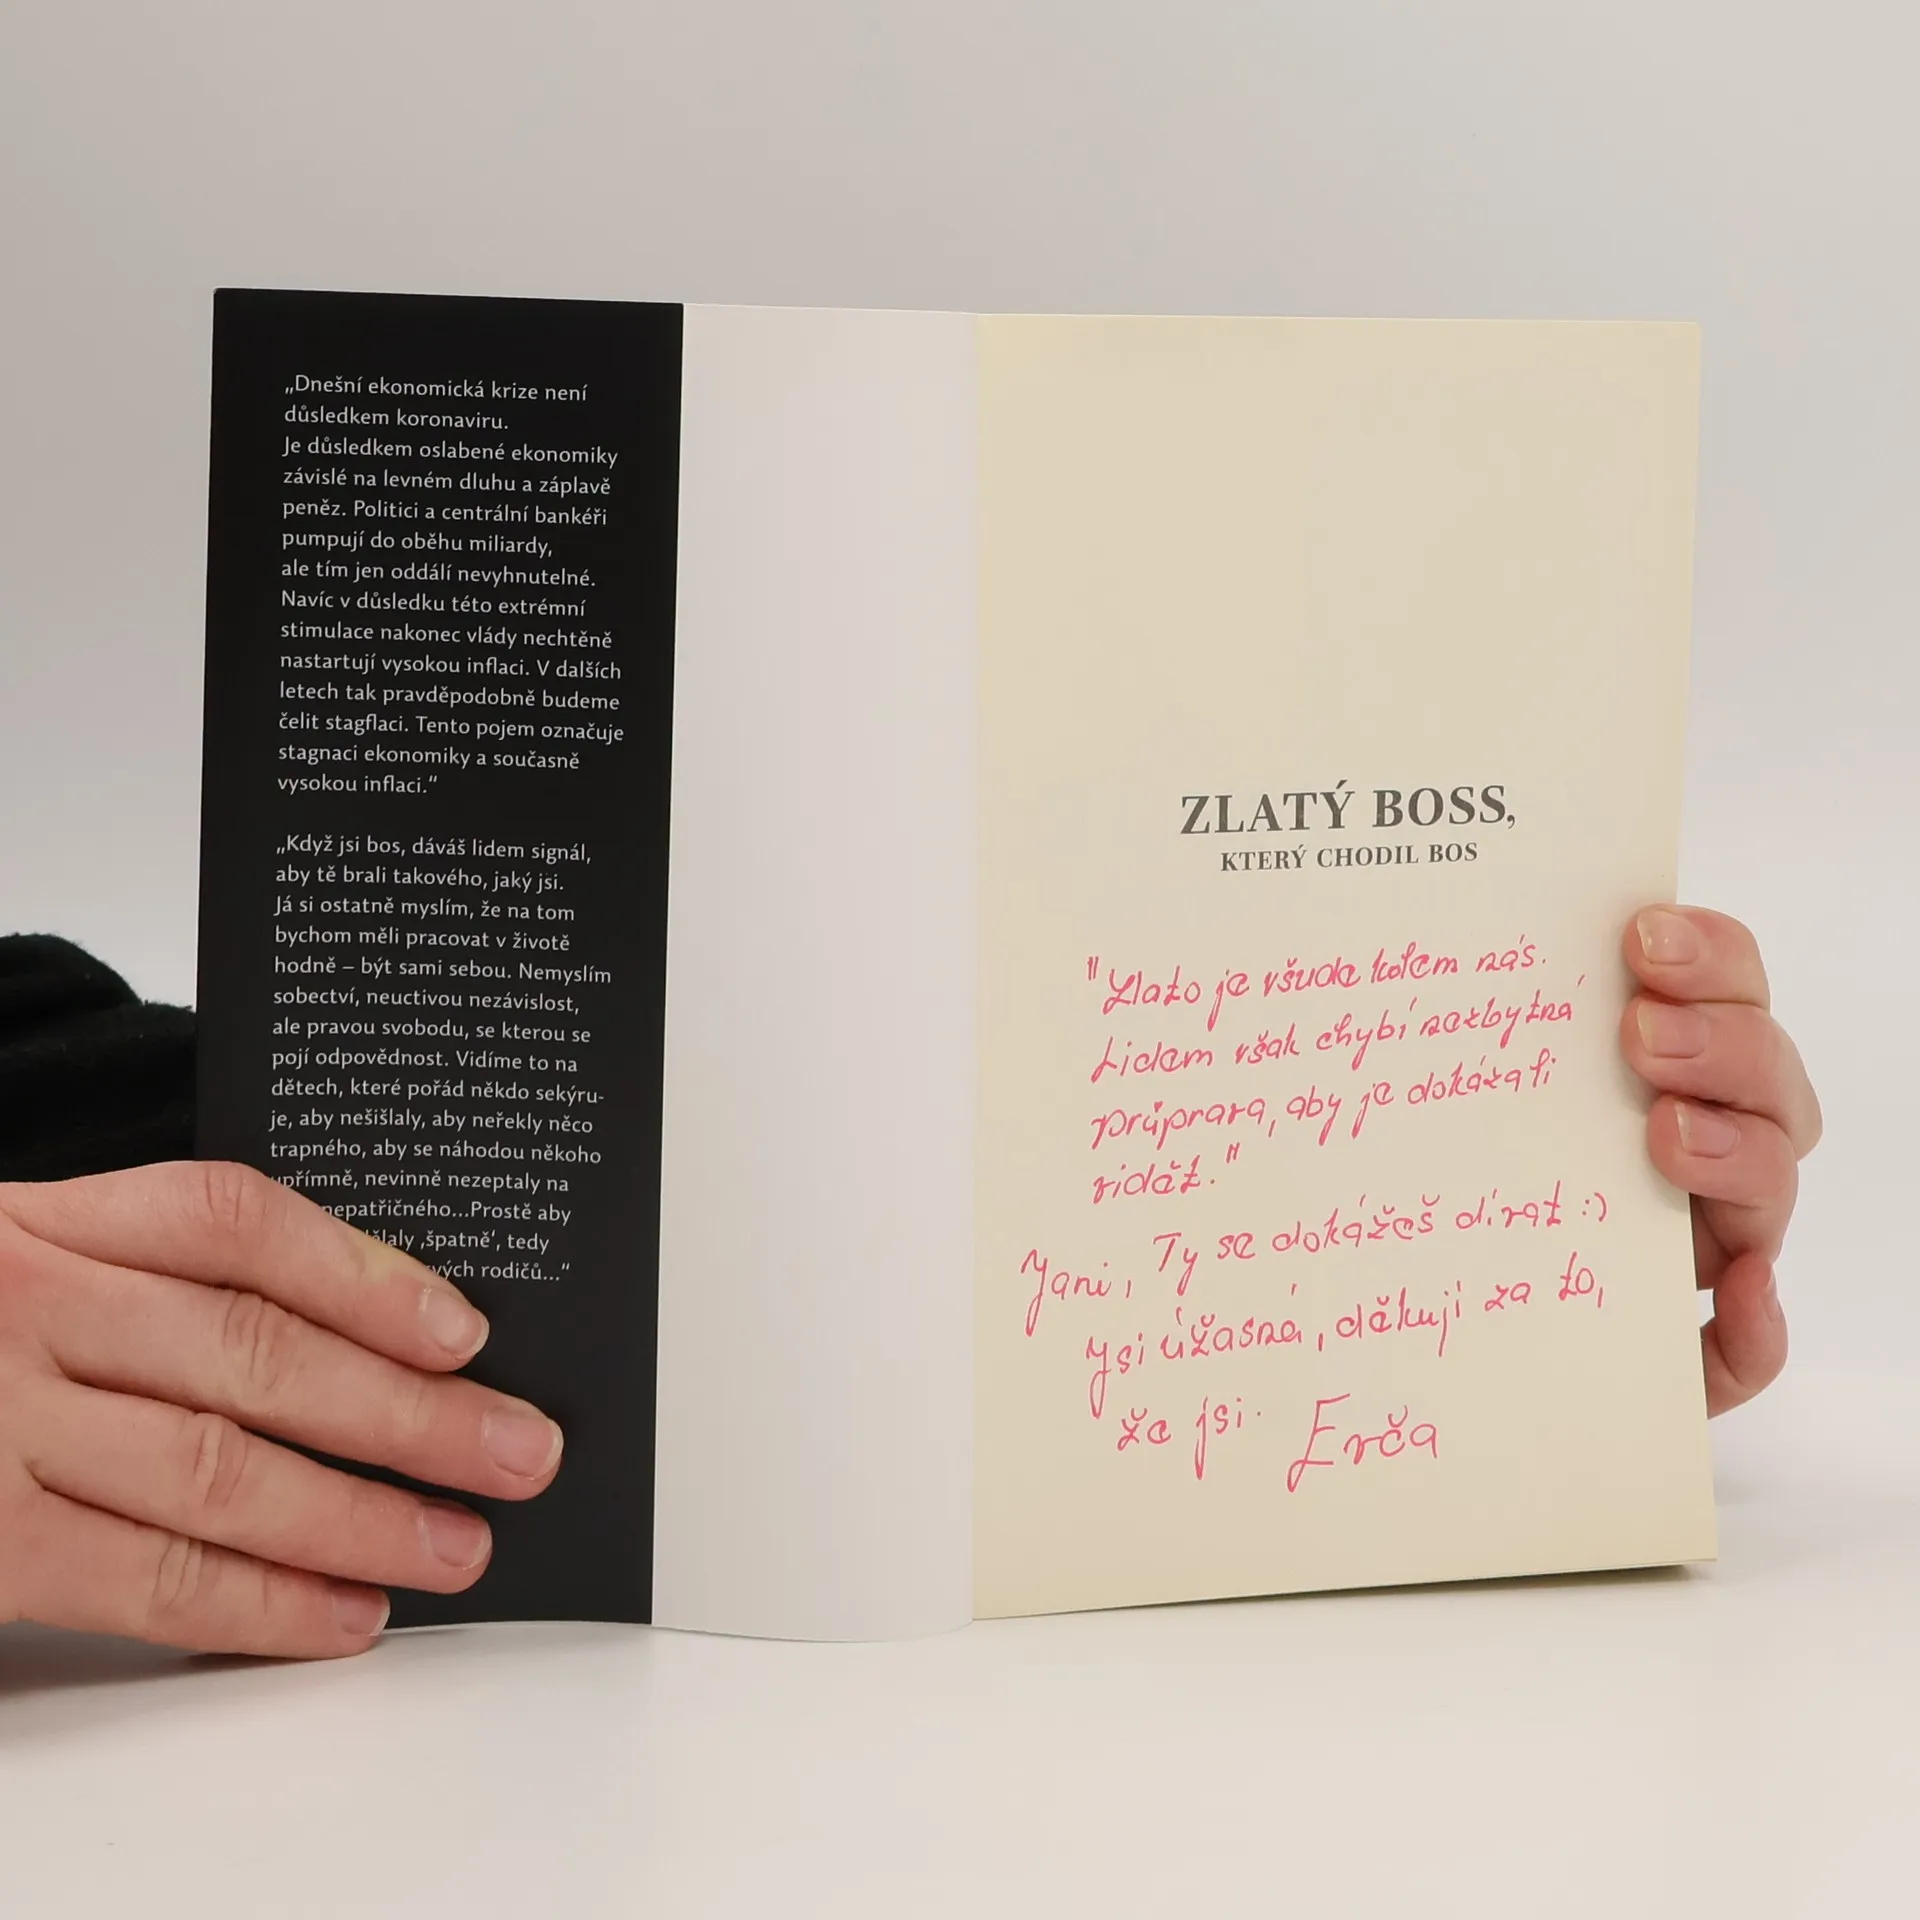 „Dnešní ekonomická krize není
důsledkem koronaviru.
Je důsledkem oslabené ekonomiky
závislé na levném dluhu a záplavě
peněz. Politici a centrální bankéři
pumpují do oběhu miliardy,
ale tím jen oddálí nevyhnutelné.
Navíc v důsledku této extrémní
stimulace nakonec vlády nechtěně
nastartují vysokou inflaci. V dalších
letech tak pravděpodobně budeme
čelit stagflaci. Tento pojem označuje
stagnaci ekonomiky a současně
vysokou inflaci.“
„Když jsi bos, dáváš lidem signál,
aby tě brali takového, jaký jsi.
Já si ostatně myslím, že na tom
bychom měli pracovat v životě
hodně – být sami sebou. Nemyslím
sobectví, neuctivou nezávislost,
ale pravou svobodu, se kterou se
pojí odpovědnost. Vidíme to na
dětech, které pořád někdo sekýru-
je, aby nešišlaly, aby neřekly něco
trapného, aby se náhodou někoho
upřímně, nevinně nezeptaly na
nepatřičného...Prostě aby
‚špatně‘, tedy
rodičů...“
ZLATÝ BOSS,
KTERÝ CHODIL BOS
"Zlato je všude kolem nás.
Lidem však chybí nezbytná
průprava, aby je dokázali
vidět."
Jani, Ty se dokážeš dívat :)
Jsi úžasná, děkuji za to,
že jsi. Erča